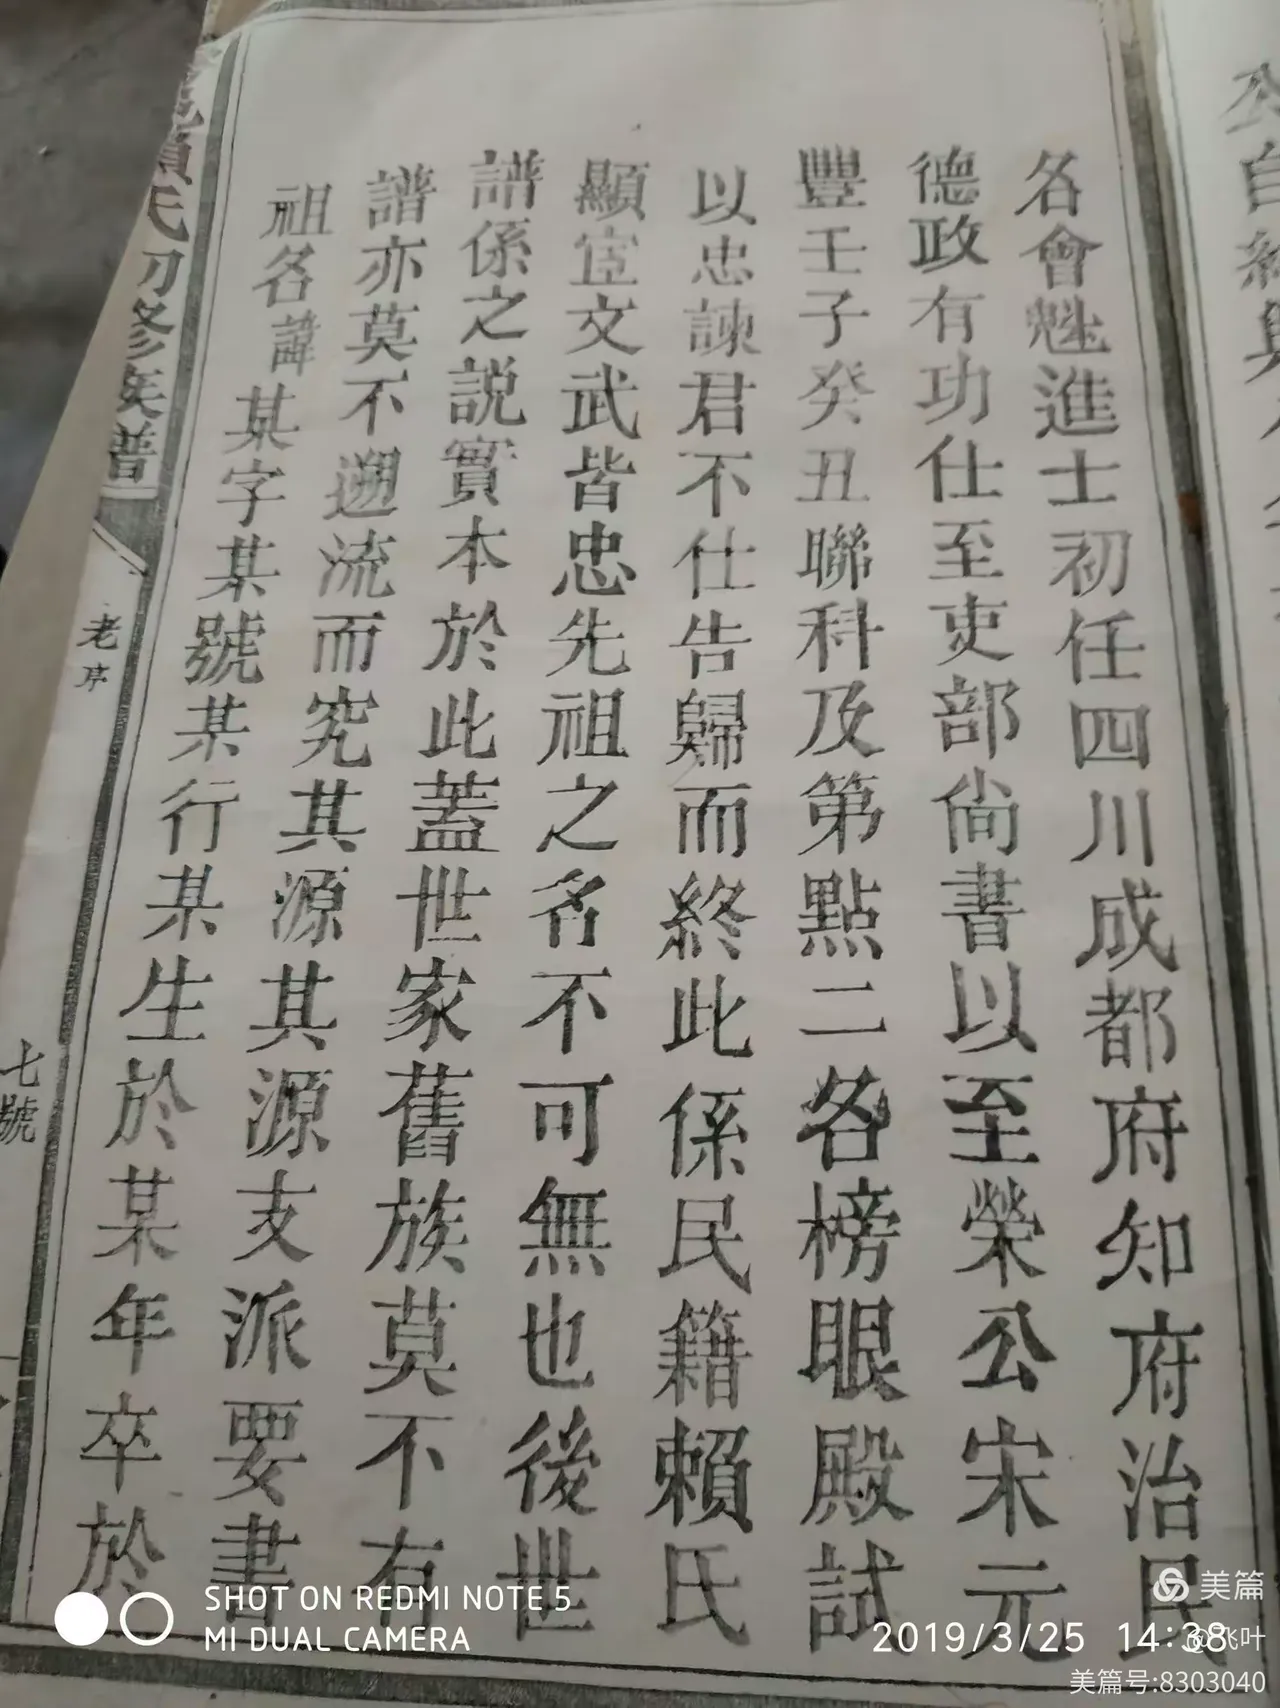 名會魁進士初任四川成都府知府治民
德政有功仕至吏部尚書以至榮公宋元
豐壬子癸丑聯科及第點二名榜眼殿試
以忠諫君不仕告歸而終此係民籍賴氏
顯宦文武皆忠先祖之名不可無也後世
譜係之説實本於此蓋世家舊族莫不有
譜亦莫不遡流而究其源其源支派要書
祖名諱某字某號某行某生於某年卒於
賴氏初修族譜
老序
七號
公自
SHOT ON REDMI NOTE 5
MI DUAL CAMERA
2019/3/25 14:38
美篇
@飞叶
美篇号:8303040